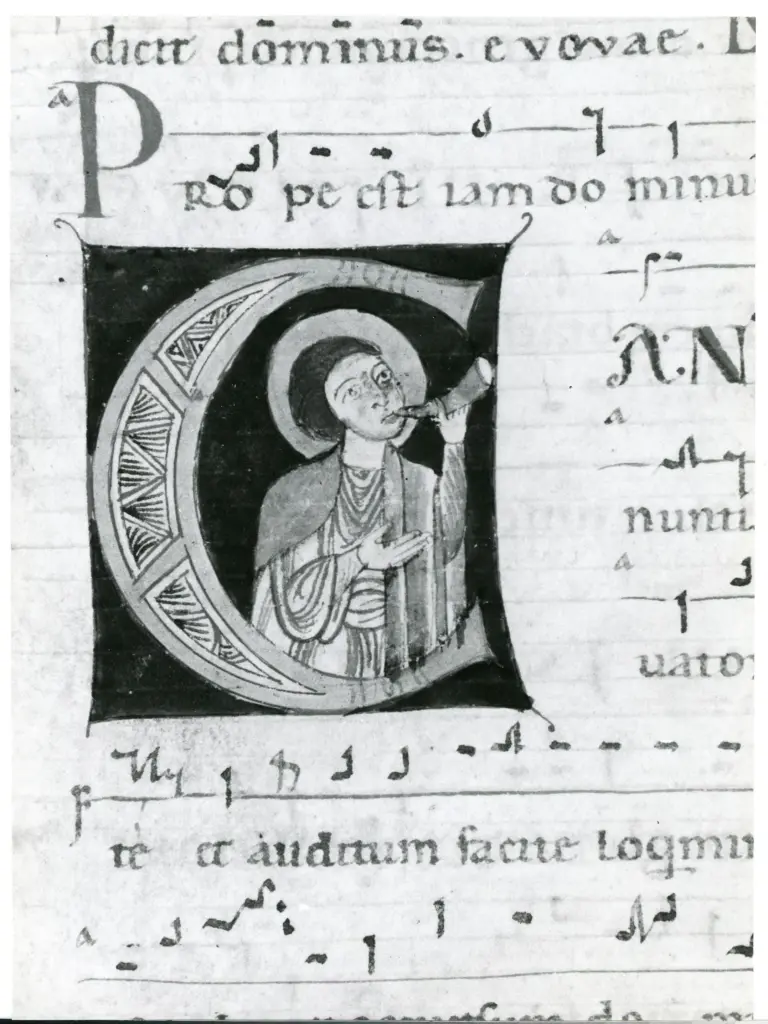 dicit dōmīnūs. e vovae.
a
PRO pe est iam do minu
a
C AN
a
nunti
a
uato
F
te et auditum facite Loqmin
a